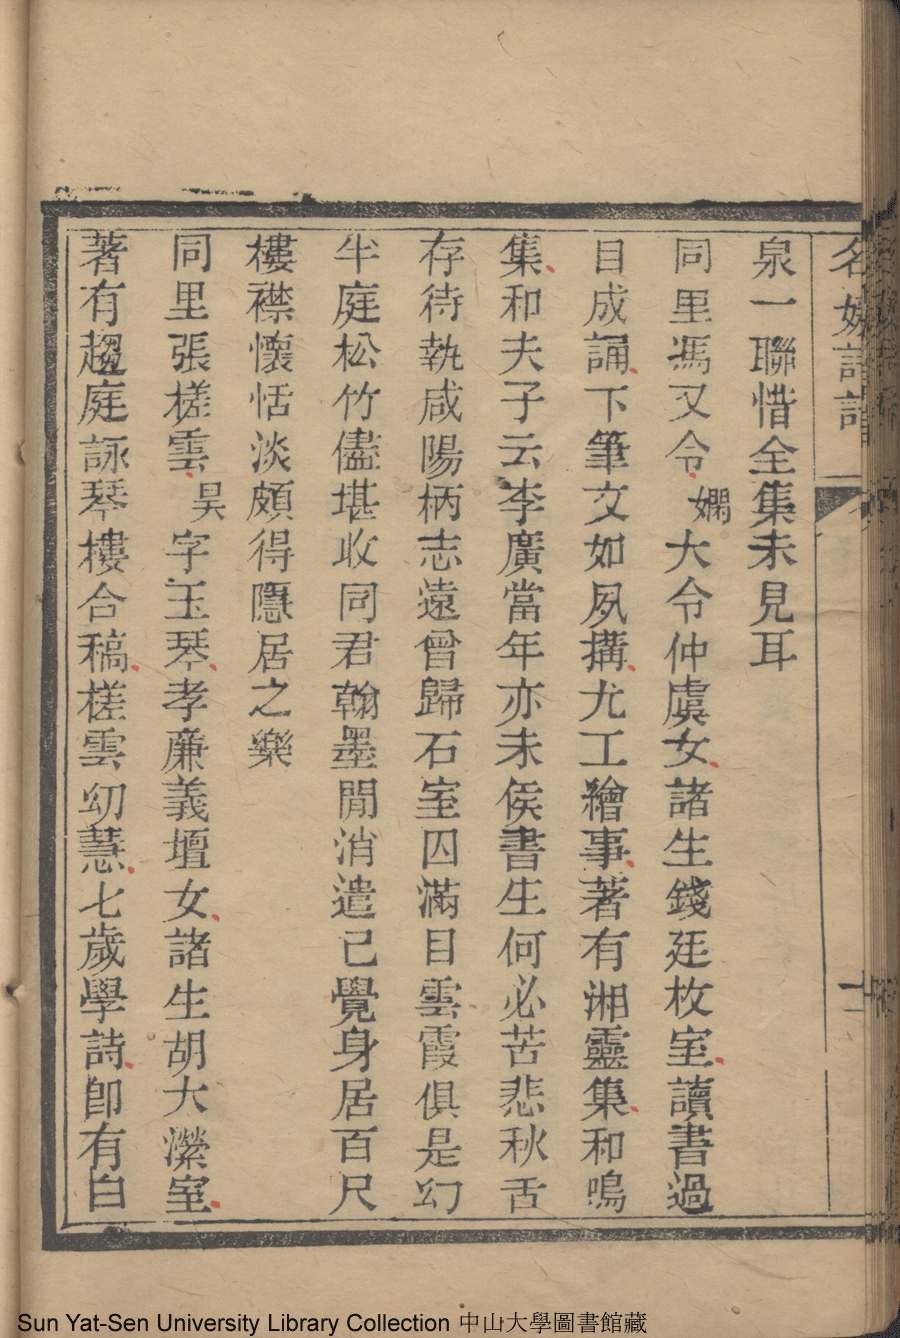 名媛詩話
十一
泉一聯惜全集未見耳
同里馮又令嫻大令仲虞女諸生錢廷枚室讀書過
目成誦下筆文如夙搆尤工繪事著有湘靈集和鳴
集和夫子云李廣當年亦未侯書生何必苦悲秋舌
存待執咸陽柄志遠曾歸石室囚滿目雲霞俱是幻
半庭松竹儘堪收同君翰墨閒消遣已覺身居百尺
樓襟懷恬淡頗得隱居之樂
同里張槎雲昊字玉琴孝廉義壇女諸生胡大瀠室
著有趨庭詠琴樓合稿槎雲幼慧七歲學詩卽有白
Sun Yat-Sen University Library Collection 中山大學圖書館藏